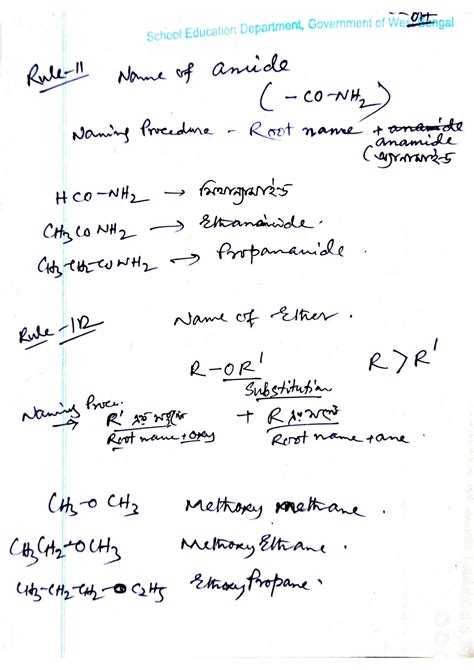 OH
School Education Department, Government of West Bengal
Rule-11 Name of amide
(-CO-NH2)
Naming Procedure - Root name + anamide
anamide
HCO-NH2 →
CH3CONH2 → Ethanamide.
CH3-CH2-CONH2 → Propanamide.
Rule-12 Name of Ether.
R-OR' R > R'
Substitution
Naming Proce.
→ R' + R
Root name + oxy Root name + ane.
CH3-O CH3 Methoxy methane.
CH3CH2-OCH3 Methoxy Ethane.
CH3-CH2-CH2-O C2H5 Ethoxy Propane.